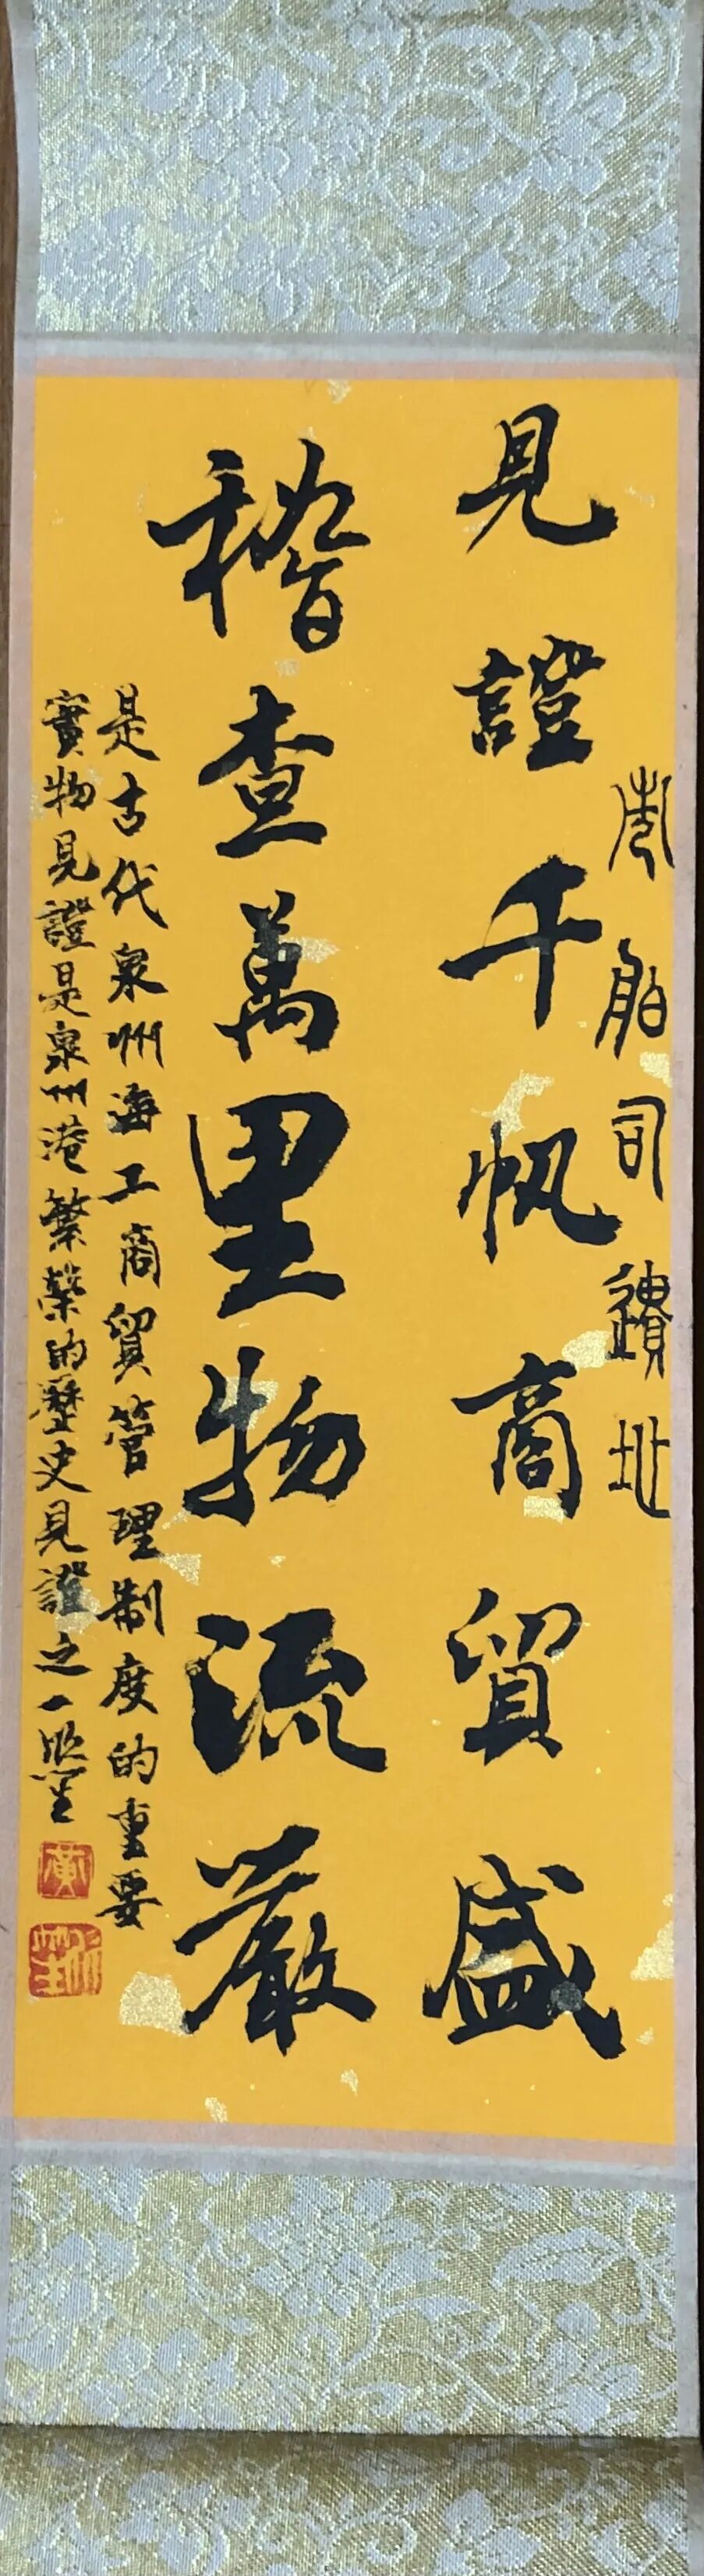 市舶司遺址
見證千帆商貿盛
稽查萬里物流嚴
是古代泉州海工商貿管理制度的重要
實物見證是泉州港繁榮的歷史見證之一